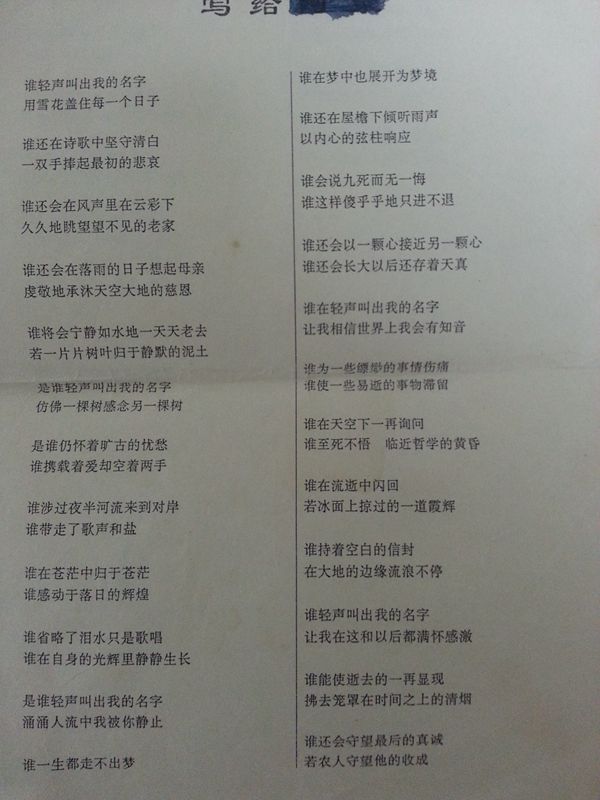 写给
谁轻声叫出我的名字
用雪花盖住每一个日子
谁还在诗歌中坚守清白
一双手捧起最初的悲哀
谁还会在风声里在云彩下
久久地眺望望不见的老家
谁还会在落雨的日子想起母亲
虔敬地承沐天空大地的慈恩
谁将会宁静如水地一天天老去
若一片片树叶归于静默的泥土
是谁轻声叫出我的名字
仿佛一棵树感念另一棵树
是谁仍怀着旷古的忧愁
谁携载着爱却空着两手
谁涉过夜半河流来到对岸
谁带走了歌声和盐
谁在苍茫中归于苍茫
谁感动于落日的辉煌
谁省略了泪水只是歌唱
谁在自身的光辉里静静生长
是谁轻声叫出我的名字
涌涌人流中我被你静止
谁一生都走不出梦
谁在梦中也展开为梦境
谁还在屋檐下倾听雨声
以内心的弦柱响应
谁会说九死而无一悔
谁这样傻乎乎地只进不退
谁还会以一颗心接近另一颗心
谁还会长大以后还存着天真
谁在轻声叫出我的名字
让我相信世界上我会有知音
谁为一些缥缈的事情伤痛
谁使一些易逝的事物滞留
谁在天空下一再询问
谁至死不悟 临近哲学的黄昏
谁在流逝中闪回
若冰面上掠过的一道霞辉
谁持着空白的信封
在大地的边缘流浪不停
谁轻声叫出我的名字
让我在这和以后都满怀感激
谁能使逝去的一再显现
拂去笼罩在时间之上的清烟
谁还会守望最后的真诚
若农人守望他的收成